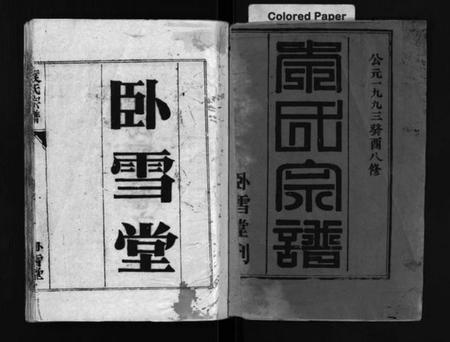 Colored Paper
公元一九九三癸酉八修
袁氏宗譜
卧雪堂刊
卧雪堂
袁氏宗譜
卧雪堂